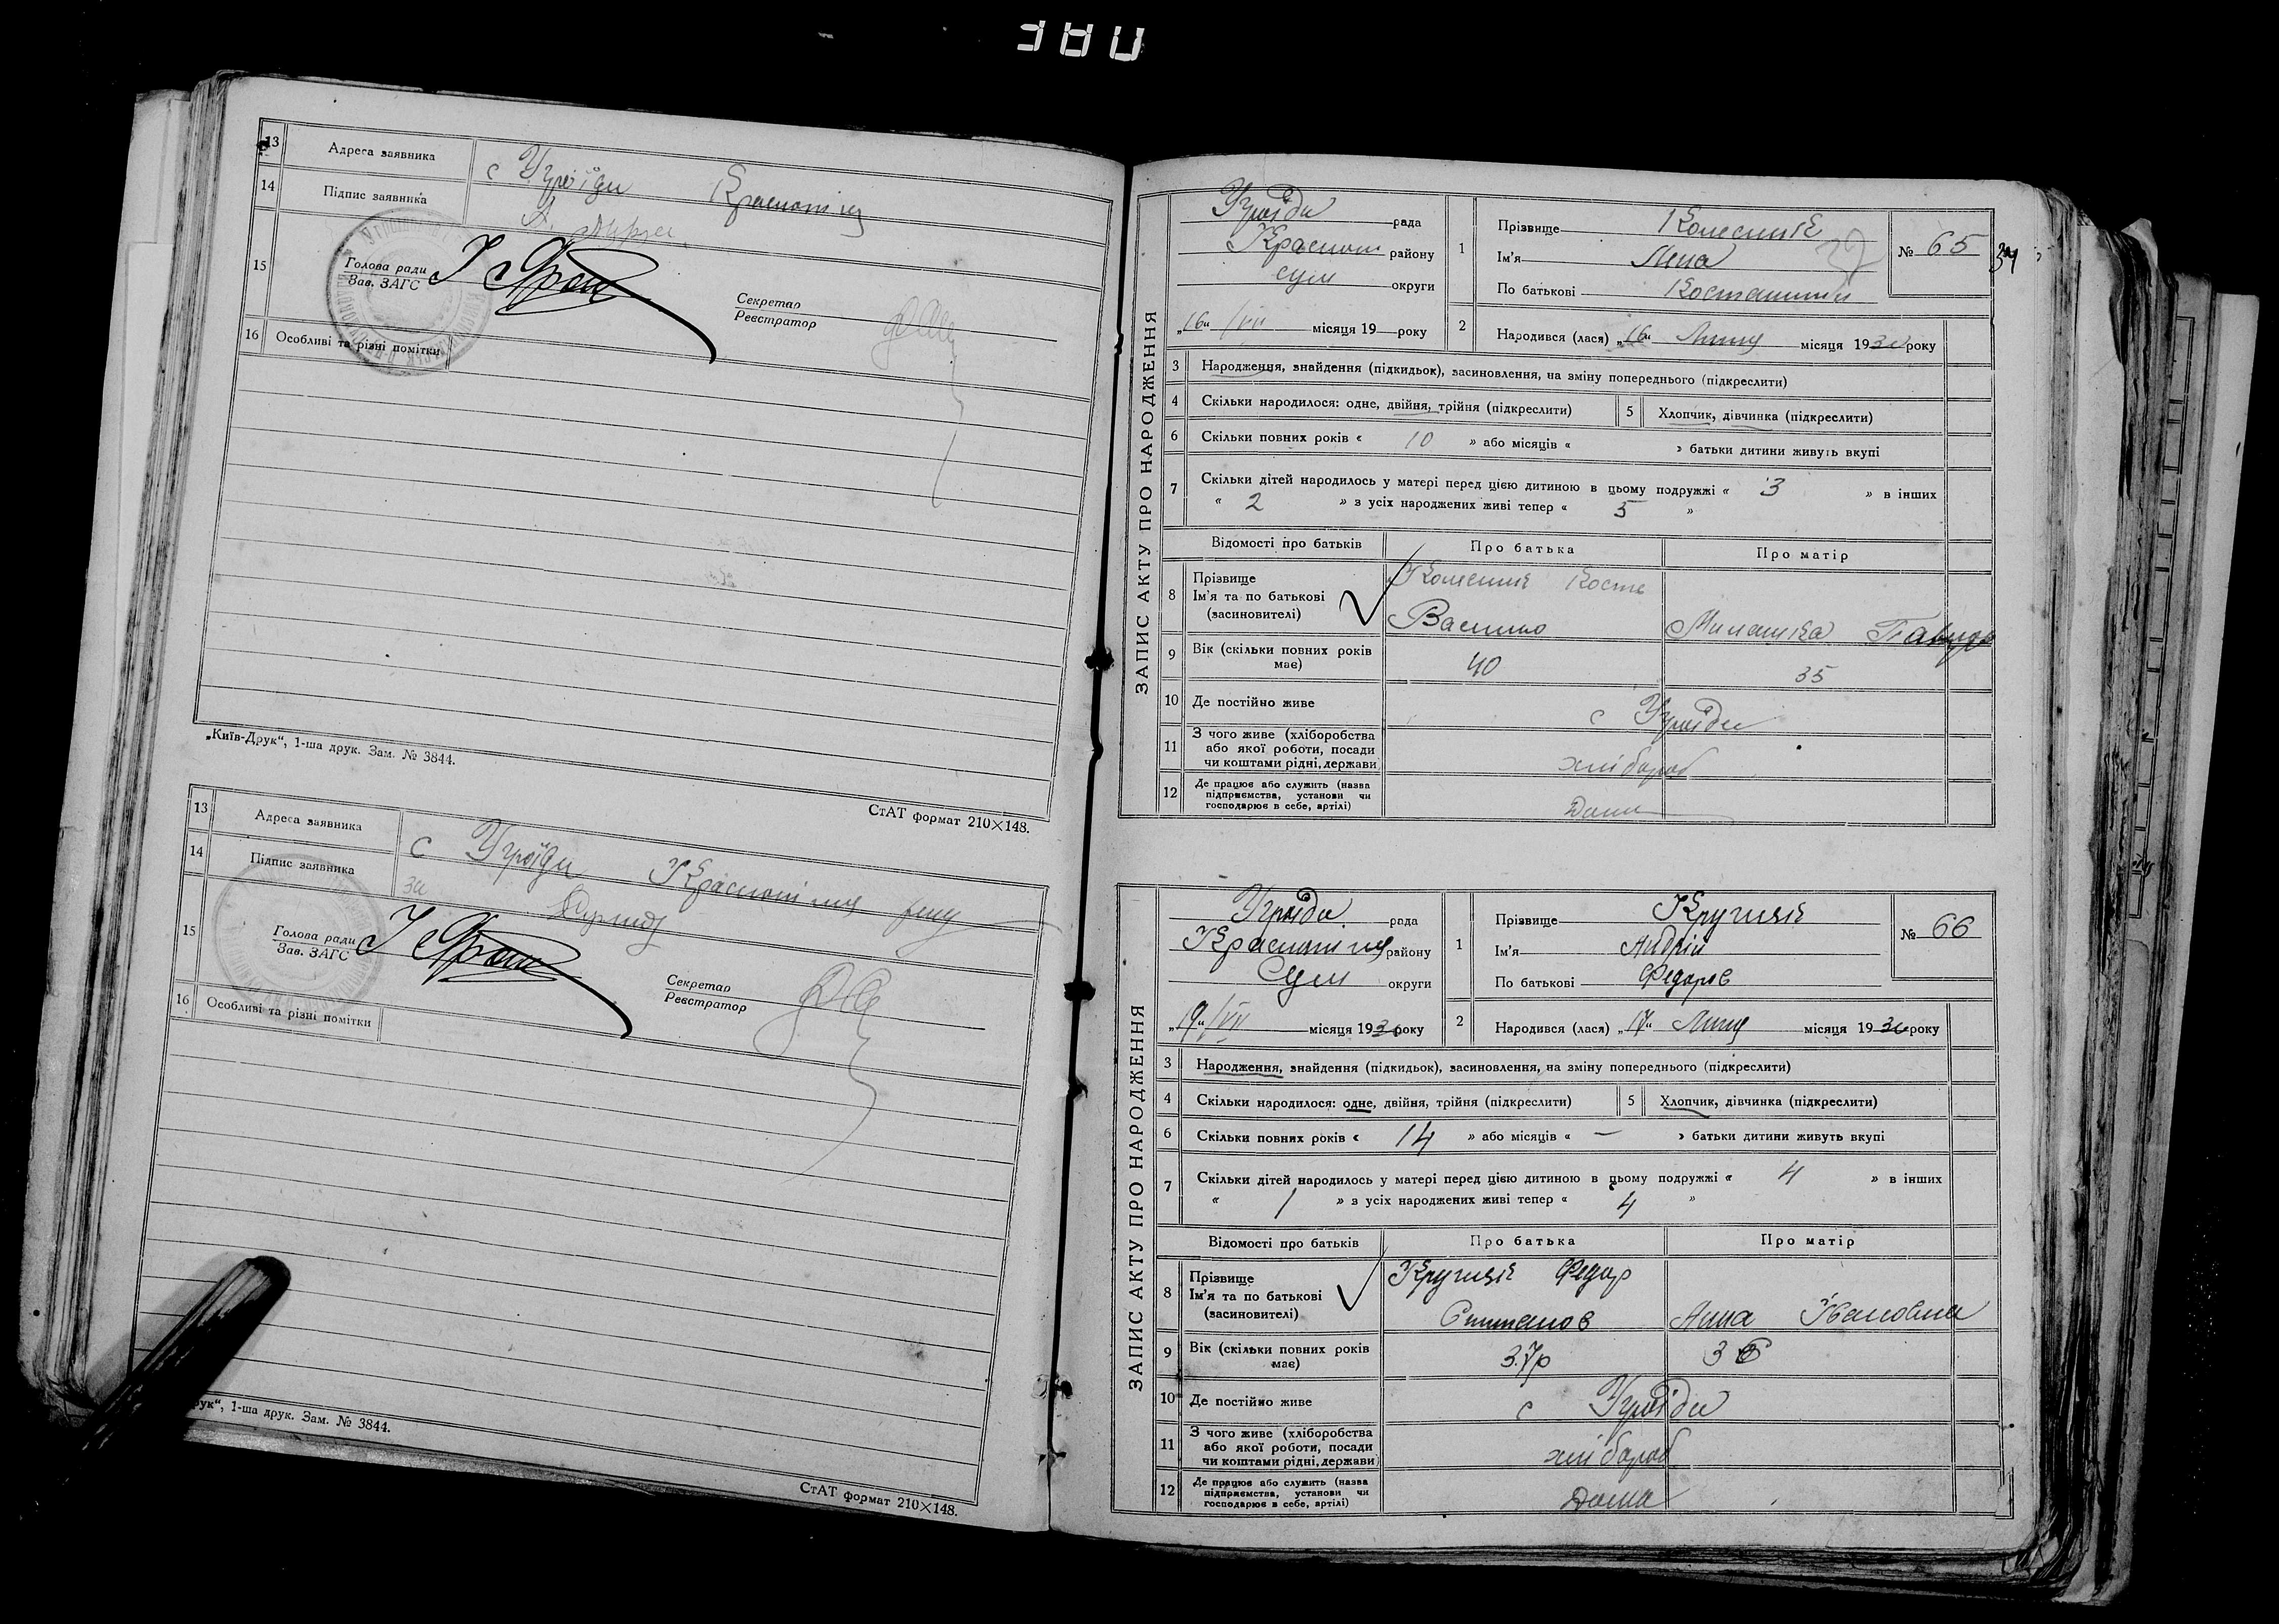 ЗАП
13 Адреса заявника с Угроїди Краснопіл
14 Підпис заявника
15 Голова ради
Зав. ЗАГС
Секретар
Реєстратор
16 Особливі та різні помітки
„Київ-Друк“, 1-ша друк. Зам. № 3844.
СтАТ формат 210×148.
13 Адреса заявника с Угроїди Краснопілля
14 Підпис заявника за
15 Голова ради
Зав. ЗАГС
Секретар
Реєстратор
16 Особливі та різні помітки
рук“, 1-ша друк. Зам. № 3844.
СтАТ формат 210×148.
ЗАПИС АКТУ ПРО НАРОДЖЕННЯ
Угроїди рада
Краснопі району
Сум округи
„16“ /VII місяця 19 року
1 Прізвище Колесник
Ім'я
По батькові
№ 65
34
2 Народився (лася) „16“ Липня місяця 1930 року
3 Народження, знайдення (підкидьок), засиновлення, на зміну попереднього (підкреслити)
4 Скільки народилося: одне, двійня, трійня (підкреслити) 5 Хлопчик, дівчинка (підкреслити)
6 Скільки повних років « 10 » або місяців « » батьки дитини живуть вкупі
7 Скільки дітей народилось у матері перед цією дитиною в цьому подружжі « 3 » в інших
« 2 » з усіх народжених живі тепер « 5 »
Відомості про батьків Про батька Про матір
8 Прізвище
Ім'я та по батькові
(засиновителі)
Колесник Кость
9 Вік (скільки повних років має) 40 35
10 Де постійно живе с Угроїди
11 З чого живе (хліборобства
або якої роботи, посади
чи коштами рідні, держави хлібороб
12 Де працює або служить (назва
підприємства, установи чи
господарює в себе, артілі) Дома
ЗАПИС АКТУ ПРО НАРОДЖЕННЯ
Угроїди рада
Краснопілля району
Сум округи
„19“ /VII місяця 1930 року
1 Прізвище
Ім'я Андрій
По батькові Федоров
№ 66
2 Народився (лася) „17“ Липня місяця 1930 року
3 Народження, знайдення (підкидьок), засиновлення, на зміну попереднього (підкреслити)
4 Скільки народилося: одне, двійня, трійня (підкреслити) 5 Хлопчик, дівчинка (підкреслити)
6 Скільки повних років « 14 » або місяців « — » батьки дитини живуть вкупі
7 Скільки дітей народилось у матері перед цією дитиною в цьому подружжі « 4 » в інших
« 1 » з усіх народжених живі тепер « 4 »
Відомості про батьків Про батька Про матір
8 Прізвище
Ім'я та по батькові
(засиновителі)
Федор
Анна Івановна
9 Вік (скільки повних років має) 37р 36
10 Де постійно живе с Угроїди
11 З чого живе (хліборобства
або якої роботи, посади
чи коштами рідні, держави хлібороб
12 Де працює або служить (назва
підприємства, установи чи
господарює в себе, артілі) Дома